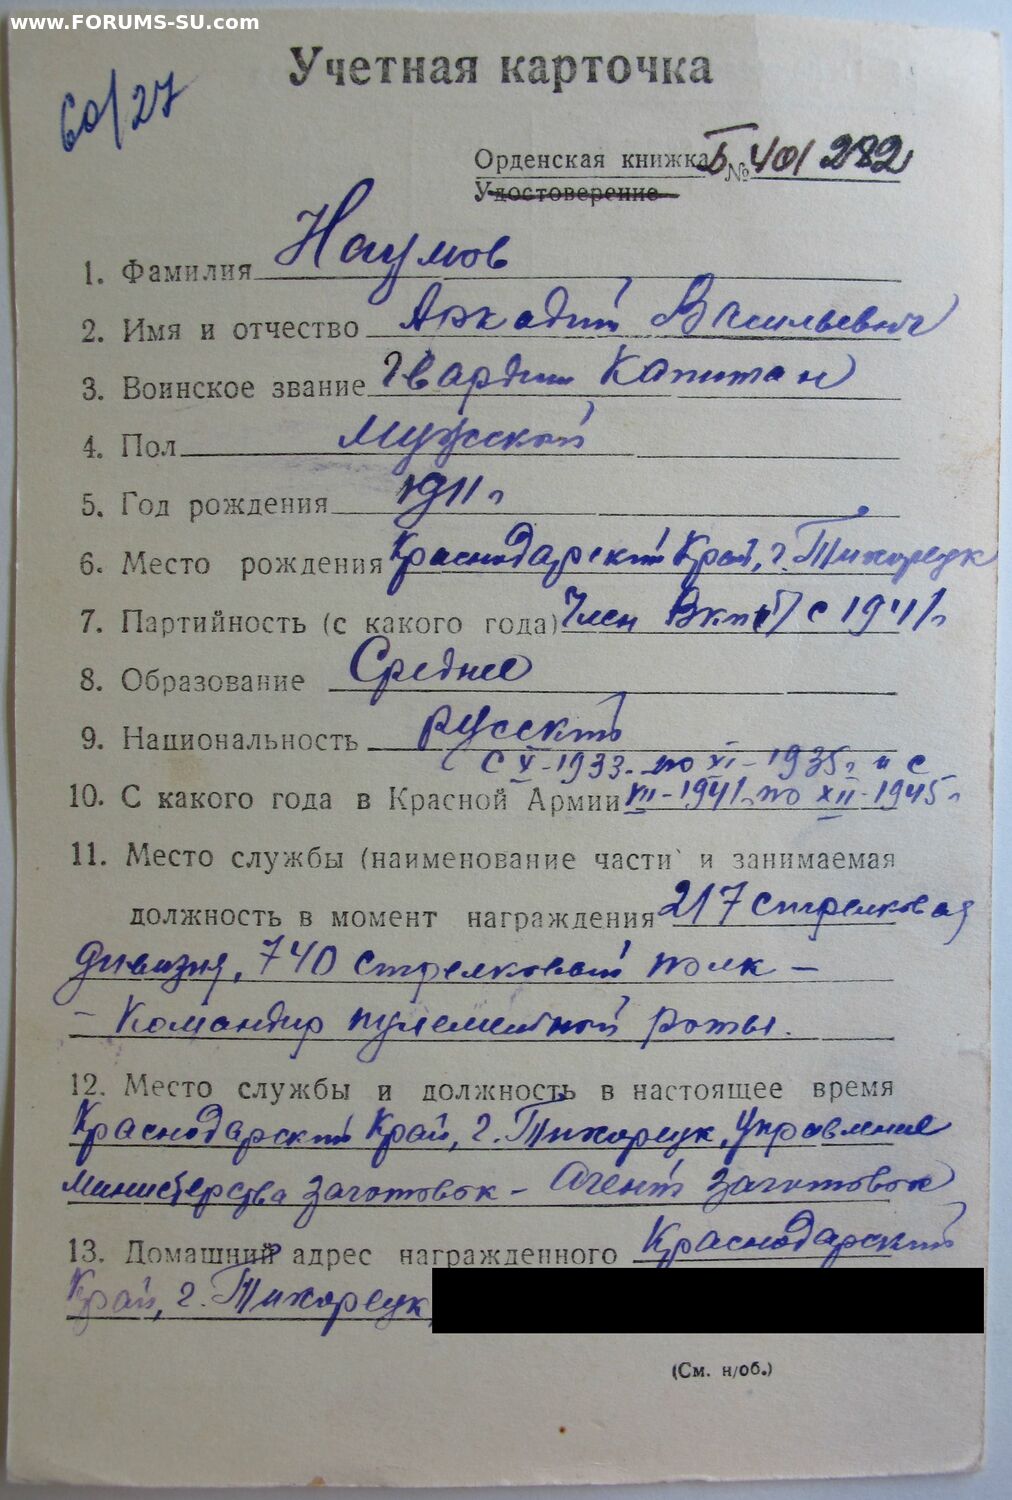 www.FORUMS-SU.com
Учетная карточка
60/27
Орденская книжка Б № 401282
Удостоверение
1. Фамилия Наумов
2. Имя и отчество Аркадий Васильевич
3. Воинское звание Гвардии Капитан
4. Пол Мужской
5. Год рождения 1911 г
6. Место рождения Краснодарский Край, г. Тихорецк
7. Партийность (с какого года) Член ВКП(б) с 1941 г
8. Образование Среднее
9. Национальность русский
С X-1933. по XI-1935 г и с
10. С какого года в Красной Армии VII-1941 г. по XII-1945 г
11. Место службы (наименование части и занимаемая
должность в момент награждения 217 стрелковая
дивизия, 740 стрелковый полк –
– Командир пулеметной роты.
12. Место службы и должность в настоящее время
Краснодарский Край, г. Тихорецк, Управление
Министерства заготовок – Агент заготовок
13. Домашний адрес награжденного Краснодарский
Край, г. Тихорецк,
(См. н/об.)